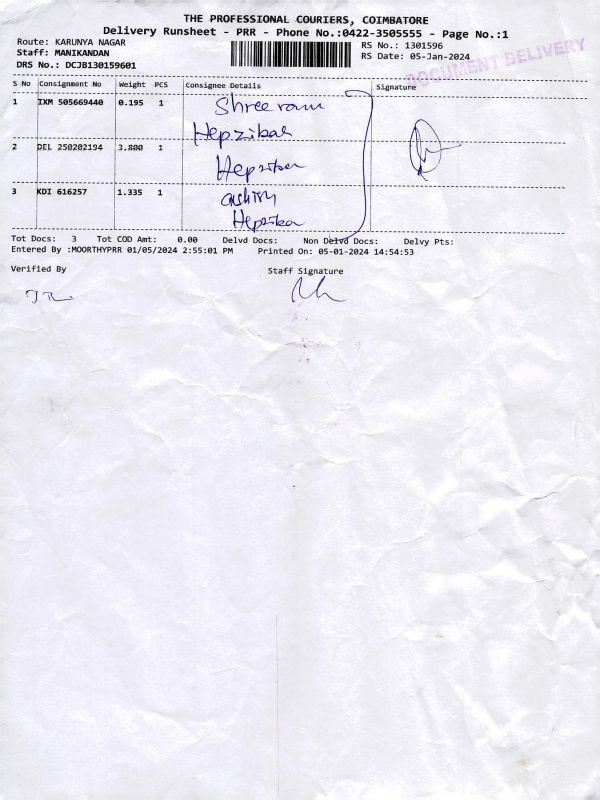 THE PROFESSIONAL COURIERS, COIMBATORE
Delivery Runsheet - PRR - Phone No.:0422-3505555 - Page No.:1
Route: KARUNYA NAGAR
Staff: MANIKANDAN
DRS No.: DCJB130159601
RS No.: 1301596
RS Date: 05-Jan-2024
DOCUMENT DELIVERY
S No Consignment No Weight PCS Consignee Details Signature
1 IXM 505669440 0.195 1 Shree ram
Hepzibah
2 DEL 250202194 3.800 1
3 KDI 616257 1.335 1
Tot Docs: 3 Tot COD Amt: 0.00 Delvd Docs: Non Delvd Docs: Delvy Pts:
Entered By :MOORTHYPRR 01/05/2024 2:55:01 PM Printed On: 05-01-2024 14:54:53
Verified By Staff Signature